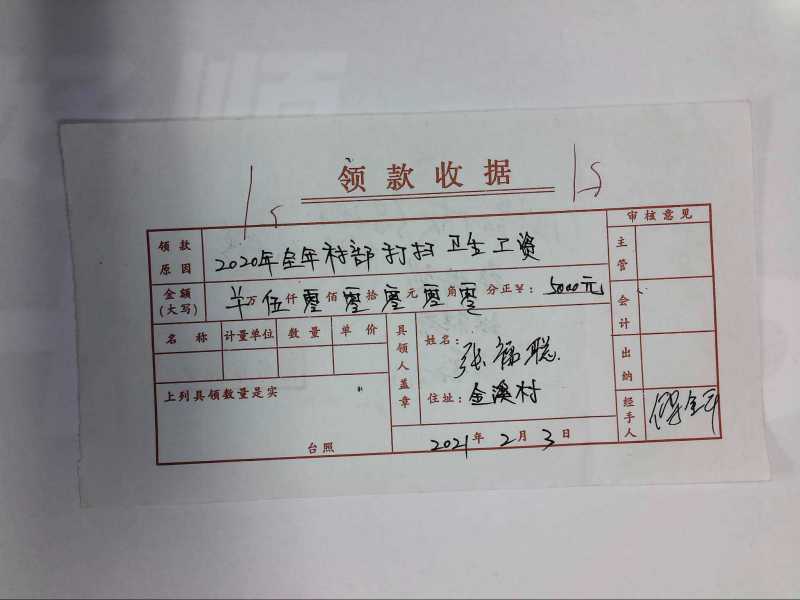 领款收据
审核意见
领款原因
2020年全年村部打扫卫生工资
主管
金额(大写)
万伍仟零佰零拾零元零角零分正¥:5000元
会计
名称 计量单位 数量 单价
具领人盖章
姓名:张福聪
上列具领数量是实
住址:金溪村
出纳
台照
2021年2月3日
经手人